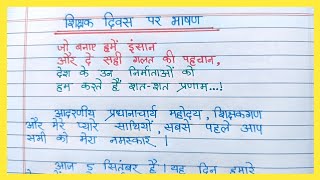 शिक्षक दिवस पर भाषण
जो बनाए हमें इंसान
और दे सही गलत की पहचान,
देश के उन निर्माताओं को
हम करते हैं शत-शत प्रणाम...!
आदरणीय प्रधानाचार्य महोदय, शिक्षकगण
और मेरे प्यारे साथियों, सबसे पहले आप
सभी को मेरा नमस्कार।
आज 5 सितंबर है। यह दिन हमारे